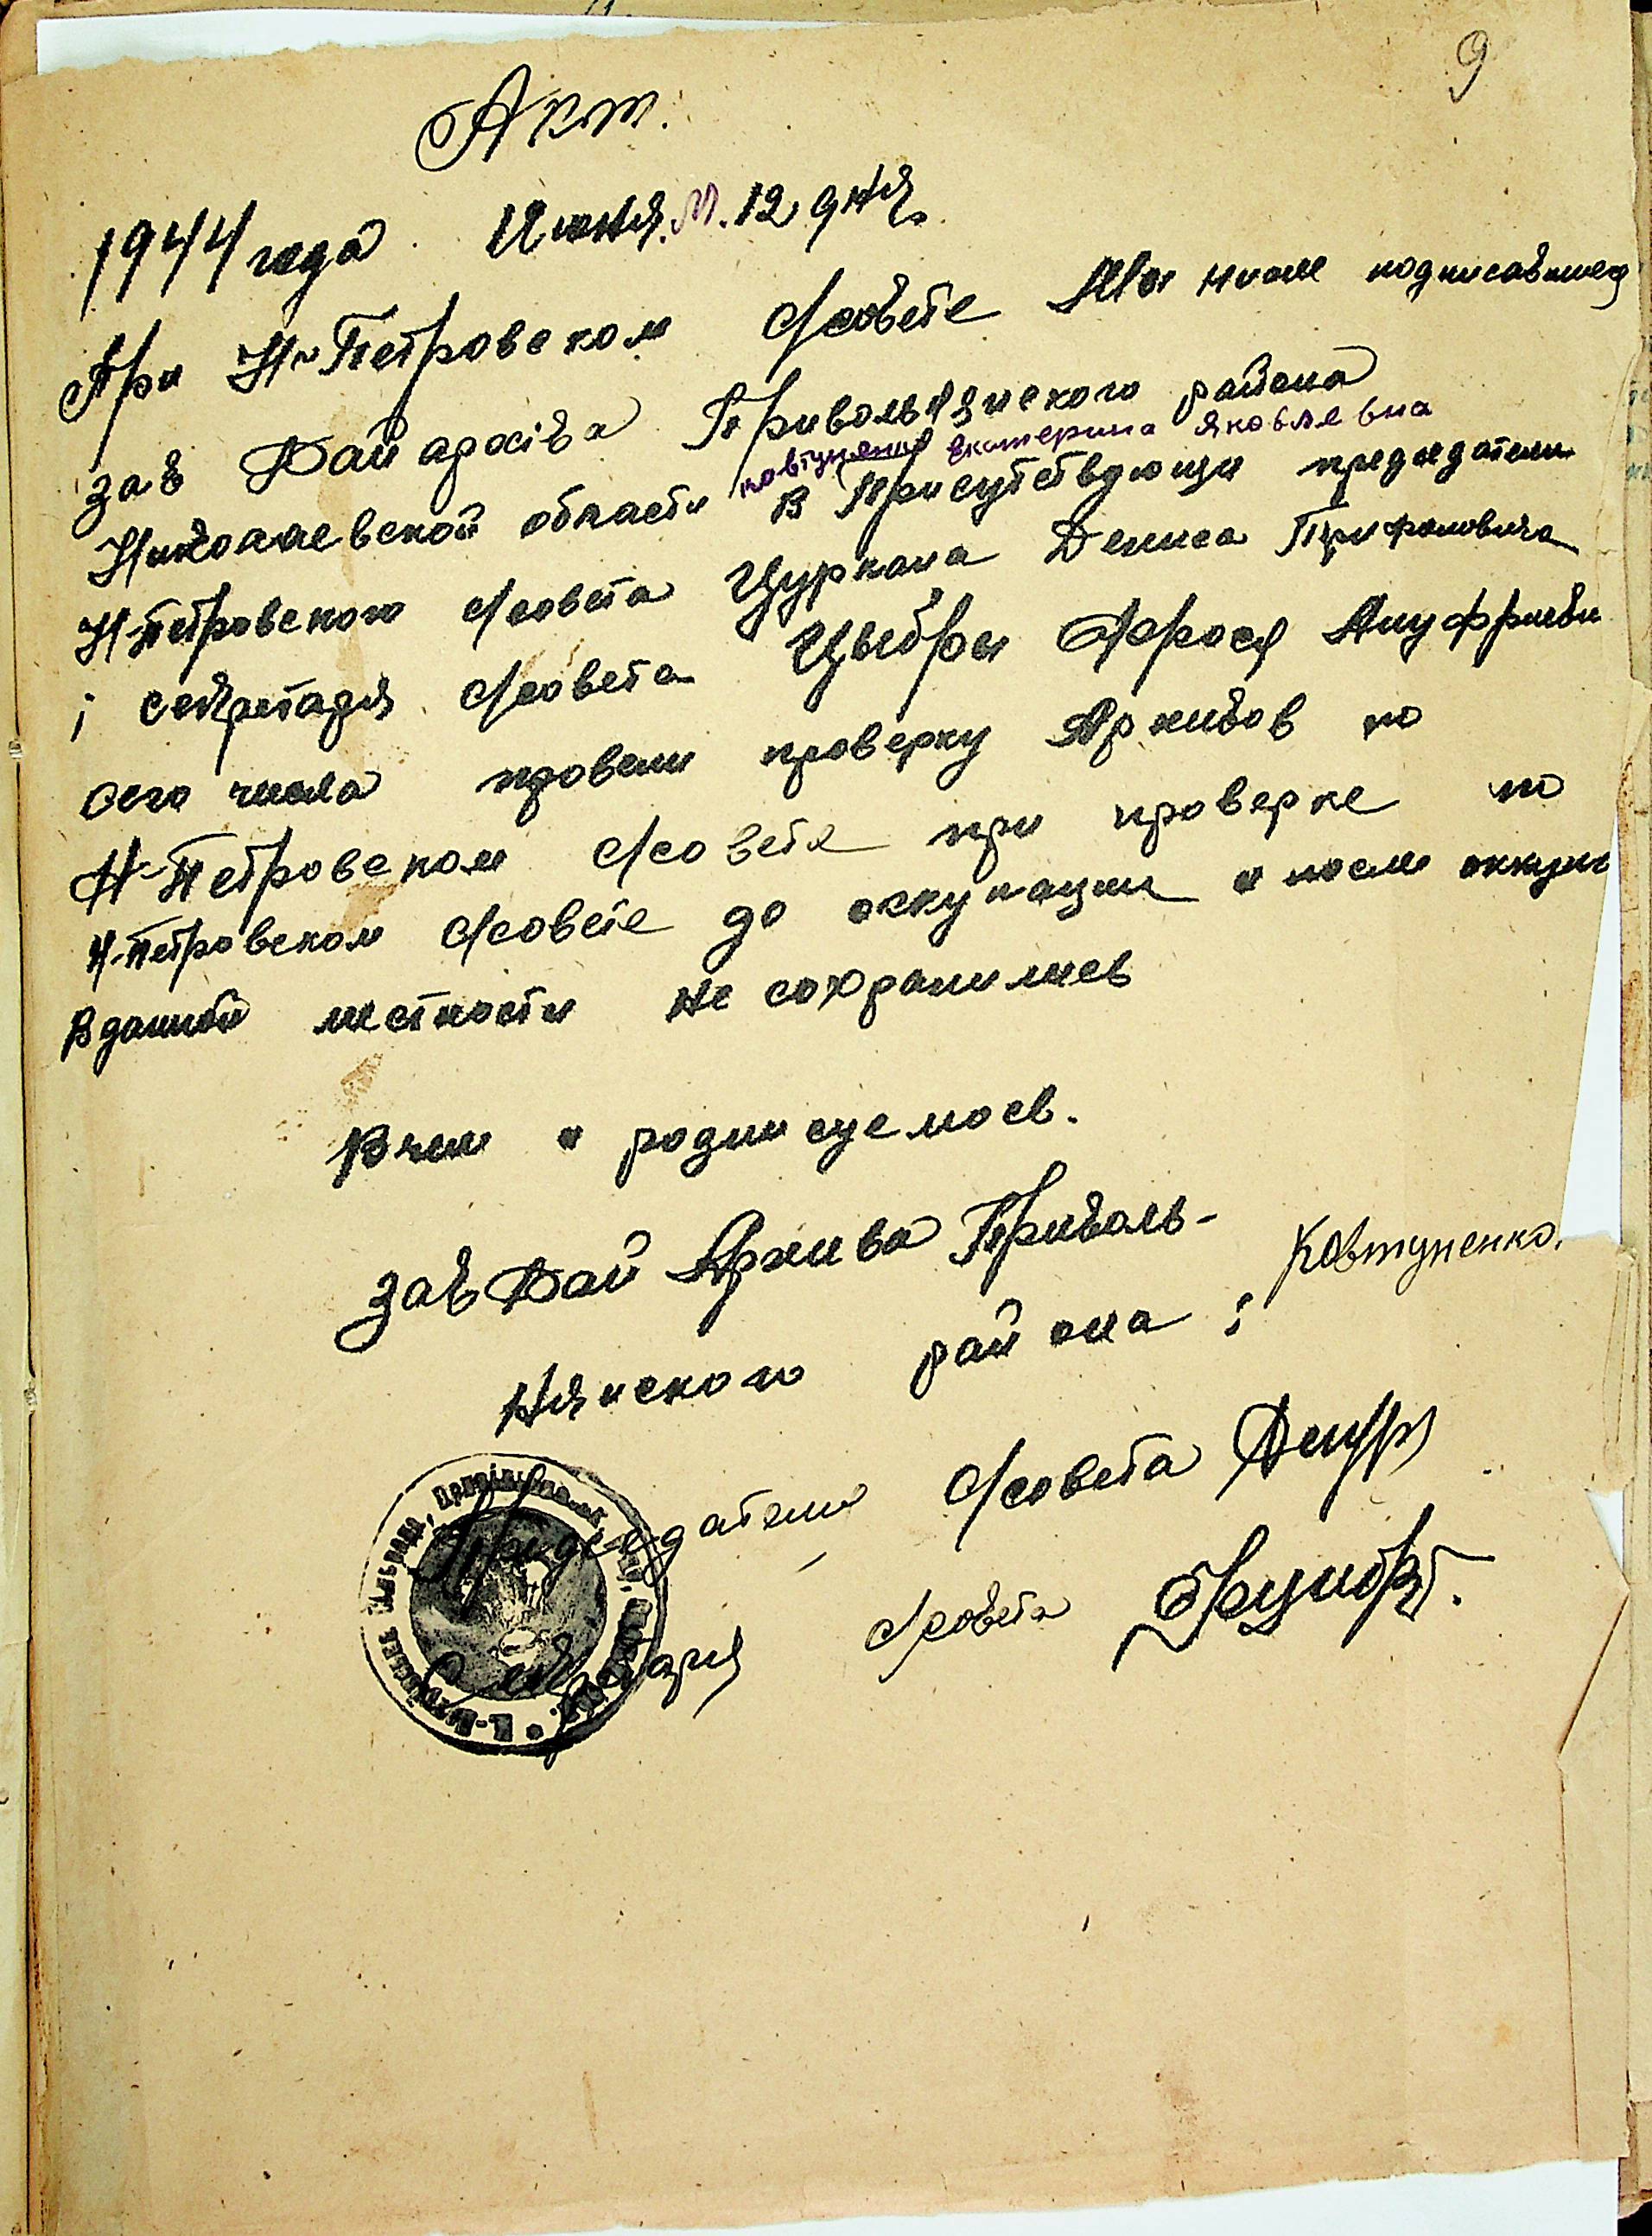 9
Акт.
1944 года Июня.М. 12 дня
При Н-Петровском с/совете Мы ниже подписавшеся
зав Райархіва Привольнянского района
Ковтуненко Екатерина Яковлевна
Николаевской области в присутствующи председателя
Н-Петровского с/совета Цуркана Дениса Трифоновича
і секретаря с/совета Цыбры Фрося Ануффриевн
сего числа провели проверку Архивов по
Н-Петровском с/совете при проверке по
Н-Петровском с/совете до оккупации и после оккупа
в данной местности не сохранились
В чем и родписуемось.
Зав Рай Архива Приволь-
нянского района : Ковтуненко.
Председатель с/совета
Секретаря с/совета